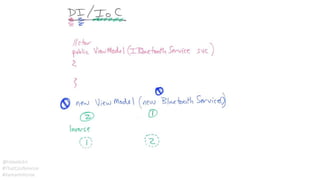 DI/IoC
//ctor
public ViewModel (IBluetoothService svc)
{
}
new ViewModel (new BluetoothService())
2 1
Inverse
1 2
#ThatConference